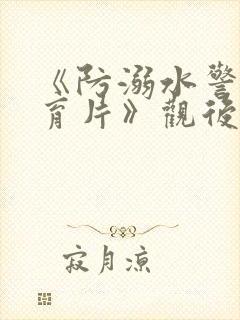 《防溺水警
育片》觀後
寂月凉